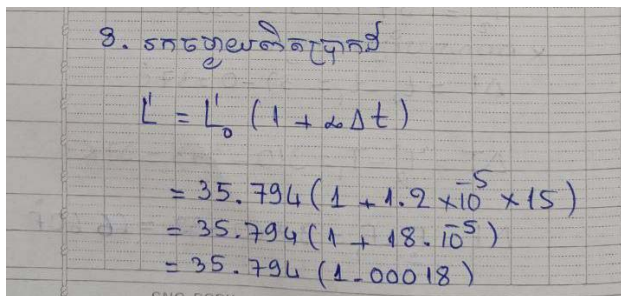 ១. រកចម្ងាយពិតប្រាកដ
L' = L'₀ (1 + αΔt)
= 35.794(1 + 1.2 ×10⁻⁵ × 15)
= 35.794(1 + 18.10⁻⁵)
= 35.794(1.00018)